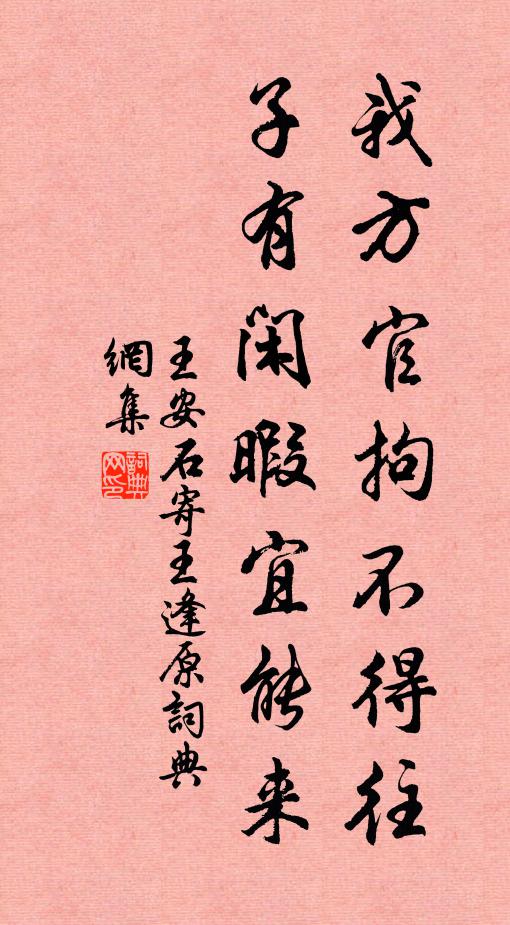 我方官拘不得往
子有閑暇宜能来
王安石寄王逢原詞典
網集
詞典
网印